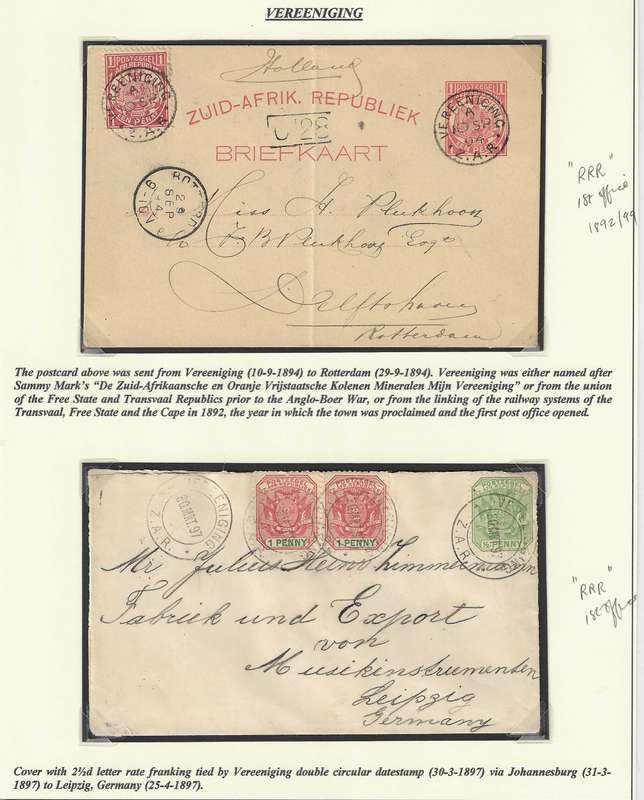 VEREENIGING
POSTZEGEL
Z. AFR. REPUBLIEK
EEN PENNY
VEREENIGING
Z.A.R.
Holland
ZUID-AFRIK. REPUBLIEK
BRIEFKAART
POSTZEGEL
VEREENIGING
A
10 SP
94
Z.A.R.
ROTTERD
29
SEP
94
Miss H. Plukhooy
"RRR"
1st office
1892/99
Delftshaven
Rotterdam
The postcard above was sent from Vereeniging (10-9-1894) to Rotterdam (29-9-1894). Vereeniging was either named after
Sammy Mark's "De Zuid-Afrikaansche en Oranje Vrijstaatsche Kolenen Mineralen Mijn Vereeniging" or from the union
of the Free State and Transvaal Republics prior to the Anglo-Boer War, or from the linking of the railway systems of the
Transvaal, Free State and the Cape in 1892, the year in which the town was proclaimed and the first post office opened.
VEREENIGING
30 MRT. 97
Z.A.R.
1 PENNY
1 PENNY
½ PENNY
Z.A.R.
Mr Julius Heinr Zimmermann
Fabriek und Export
von
Musikinstrumenten
Leipzig
Germany
"RRR"
1st office
Cover with 2½d letter rate franking tied by Vereeniging double circular datestamp (30-3-1897) via Johannesburg (31-3-
1897) to Leipzig, Germany (25-4-1897).